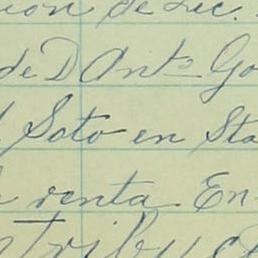 ion de Lic.
de D Antº Go
Soto en Sta
renta. En
tribu